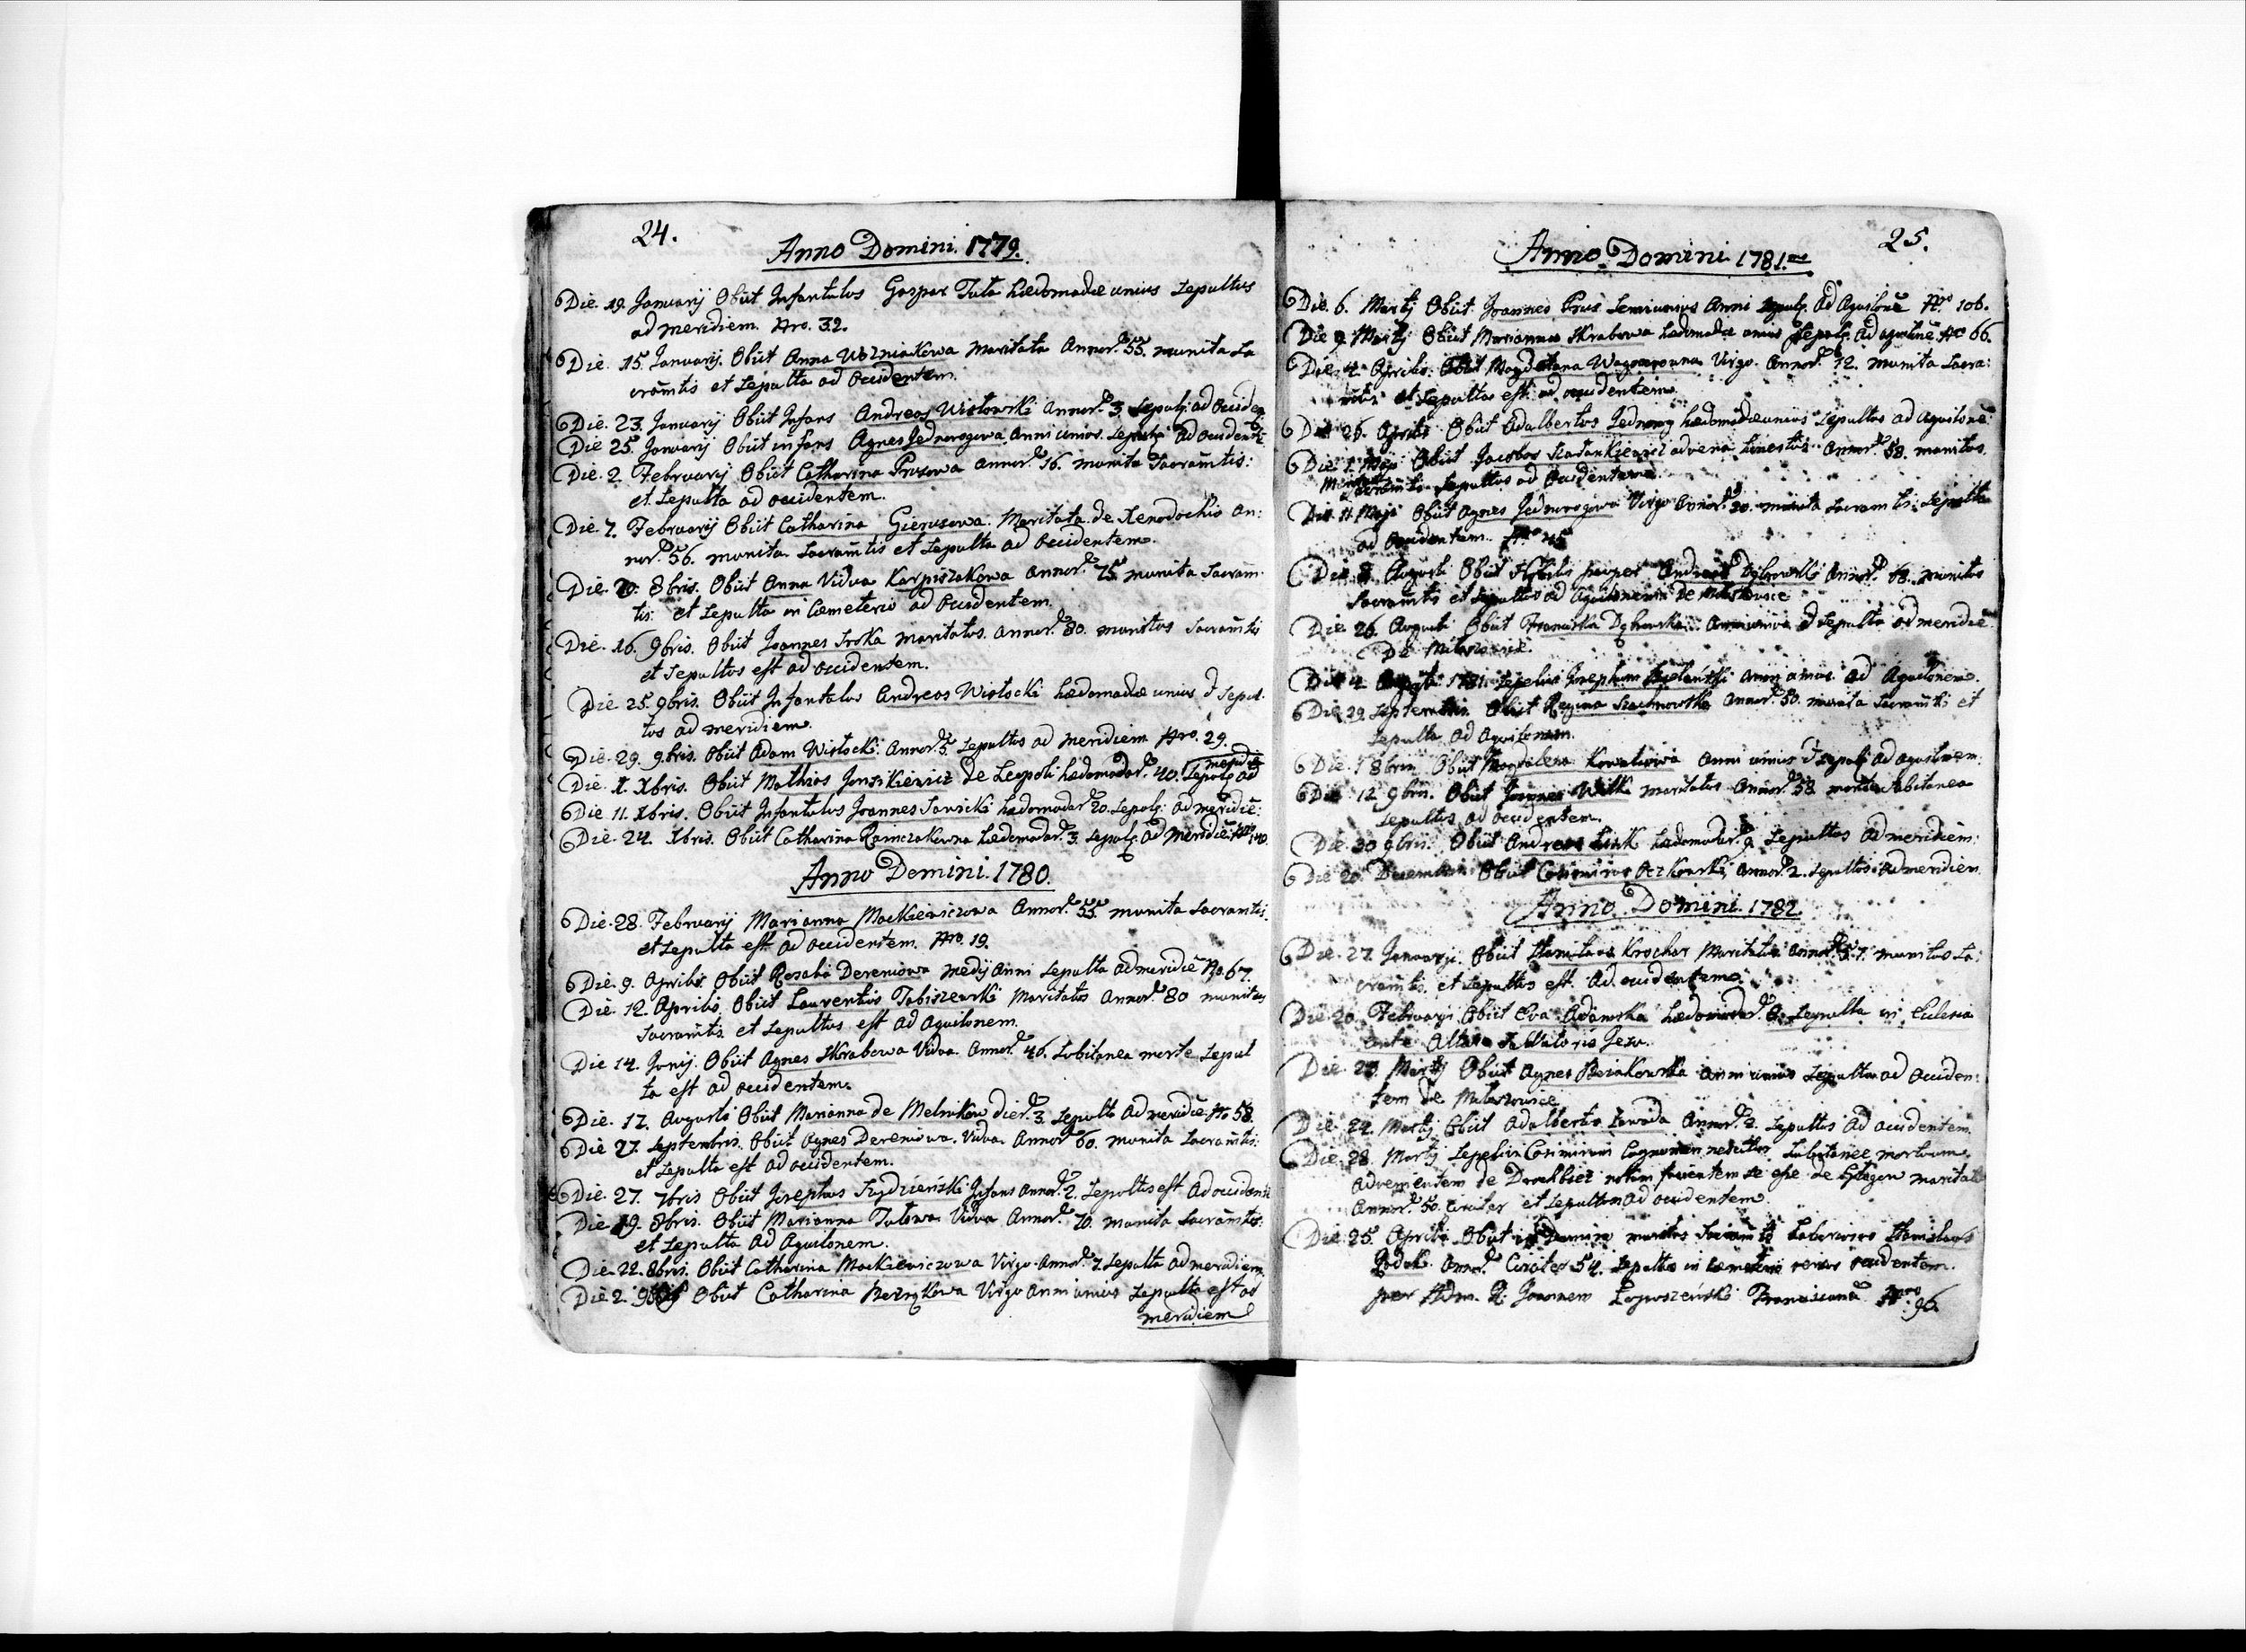 24.
Anno Domini. 1779.
Die. 19. Januarij Obiit Infantulus Gaspar Tuta hædomadæ unius Sepultus
ad meridiem Nro. 32.
Die. 15. Januarij. Obiit Anna Wozniakowa Maritata Annor. 55. munita Sa
cramtis et Sepulta ad Occidentem.
Die. 23. Januarij Obiit Infans Andreas Wisłowski Annor. 3. Sepul: ad Occiden
Die 25. Januarij Obiit infans Agnes Jednorogowa Anni unius Sepulta ad Occident:
Die. 2. Februarij Obiit Catharina Prusowa annor. 36. munita Sacramtis:
et Sepulta ad occidentem.
Die. 7. Februarij Obiit Catharina Gierusowa. Maritata de Xenodochio an:
nor. 56. munita Sacramtis et Sepulta ad Occidentem.
Die. 20. 8bris. Obiit Anna Vidua Karpiszakowa Annor. 75 munita Sacram
tis: et Sepulta in Cæmeterio ad Occidentem.
Die. 16. 9bris. Obiit Joannes Sroka Maritatus annor. 80. munitus Sacramtis
et Sepultus est ad occidentem.
Die 25. 9bris. Obiit Infantulus Andreas Wisłocki hædomadæ unius Sepul
tus ad meridiem.
Die. 29. 9bris. Obiit Adam Wisłocki: Annor. 5. Sepultus ad meridiem Nro. 29.
Die. 1. Xbris. Obiit Mathias Janikiewicz de Leopoli hædomadar. 40. Sepul ad
merid
Die. 11. Xbris. Obiit Infantulus Joannes Sawicki hædomadar 20. Sepul: ad meridie:
Die. 24. Xbris. Obiit Catharina Raimczakowna hædomadar. 3. Sepul ad Meridie
Anno Domini. 1780.
Die. 28. Februarij Marianna Mackiewiczowa Annor. 55. munita Sacramtis.
et Sepulta est ad occidentem. Nro. 19.
Die. 9. Aprilis. Obiit Rosalia Dereniowa Medij Anni Sepulta ad meridie No. 67.
Die. 12. Aprilis. Obiit Laurentius Tobiszewski Maritatus Annor. 80 munitus
Sacramtis. et Sepultus est ad Aquilonem.
Die 14. Junij. Obiit Agnes Skrabowa Vidua Annor. 46. Subitanea morte Sepul
ta est ad occidentem.
Die. 17. Augusti Obiit Marianna de Melnikow dier. 3. Sepulta ad meridie No 58.
Die 27. Septembris. Obiit Agnes Dereniowa. Vidua Annor 60. munita Sacramtis:
et Sepulta est ad occidentem.
Die. 27. 7bris Obiit Josephus Szydzienski Infans Annor. 2. Sepultus est ad occident
Die 19. 8bris. Obiit Marianna Tutowa Vidua Annor. 70. munita Sacramtis:
et Sepulta ad Aquilonem.
Die. 22. 8bris. Obiit Catharina Mackiewiczowa Virgo Annor. 7. Sepulta ad meridiem
Die 2. Obiit Catharina Virgo anni unius Sepulta est ad
meridiem
25.
Anno Domini 1781.
Die. 6. Martij Obiit Joannes Prus Semiunius Anni Sepul. ad Aquilone No. 106.
Die 9 Martij Obiit Marianna Skrabowa hædomadæ unius Sepul: ad aquilone No 66.
Die. 4. Aprilis. Obiit Magdalena Virgo Annor. 12. munita Sacra:
mtis et Sepulta est ad occidentem.
Die 26. Aprilis Obiit Adalbertus hædomadæ unius Sepultus ad Aquilone
Die. 1. Maji Obiit Jacobus advena honestus Annor. 58. munitus
Sacramtis Sepultus ad Occidentem
Die 11. Maji Obiit Agnes Jednorogowa Virgo Annor. 20. munita Sacramtis: Sepulta
ad Occidentem.
Die 8 Augusti Obiit Andreas Dębowski Annor. 68. munitus
Sacramtis et Sepultus ad Aquilonem de
Die. 26. Augusti Obiit Franciska Dębowska Anni unius Sepulta ad meridie
De
Die 4 1781. Sepelivi Josephum Anni unius ad Aquilonem.
Die 29 Septembris Obiit Regina Szachnowska Annor. 50. munita Sacramtis et
Sepulta ad Aquilonem
Die. 1 8bris Obiit Magdalena Kowalowa Anni unius Sepul ad aquilonem
Die 12 9bris. Obiit Joannes Wilk maritatus Annor. 58 morte Subitanea
Sepultus ad occidentem.
Die 30 9bris. Obiit Andreas hædomadar. 9. Sepultus ad meridiem:
Die 20 Decembris Obiit Casimirus annor. 2. Sepultus ad meridiem
Anno Domini. 1782.
Die. 27. Januarij. Obiit Stanislaus Krochar Maritatus Annor. munitus Sa:
cramtis. et Sepultus est ad occidentem.
Die 20. Februarij Obiit Eva Adamska hædomadar. 8. Sepulta in Eclesia
ante Altare Salvatoris Jesu.
Die. 20 Martij Obiit Agnes anni unius Sepulta ad Occiden:
tem de
Die 22. Martij Obiit Adalbertus Annor. 2. Sepultus ad occidentem.
Die. 28. Martij Sepelivi Casimirum Cognomen nescitur Subitanee mortuum
advenientem de notum facientem se esse de maritat
Annor. 50. Circiter et Sepultum ad occidentem.
Die 25. Aprilis Obiit in Domino munitus Sacramtis Laboriosus Stanislaus
Annor. Circiter 54. Sepultus in cæmeterio versus occidentem.
per Adm. R. Joannem Franciscanu Nro 96.